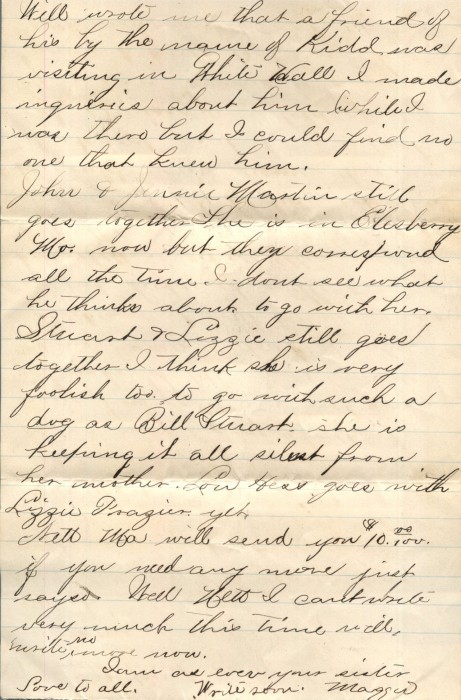 Will wrote me that a friend of
his by the name of Kidd was
visiting in White Hall I made
inquiries about him while I
was there but I could find no
one that knew him.
John & Jennie Martin still
goes together She is in Elesberry
Mo. now but they correspond
all the time. I dont see what
he thinks about to go with her.
Stuart & Lizzie still goes
together I think she is very
foolish too to go with such a
dog as Bill Stuart. she is
keeping it all silent from
her mother. Lou Hess goes with
Lizzie Frazier yet.
Nett Ma will send you $10.00/100.
if you need any more just
say so. Well Nett I cant write
very much this time will,
write no more now.
I am as ever your sister
Love to all. Write soon. Maggie